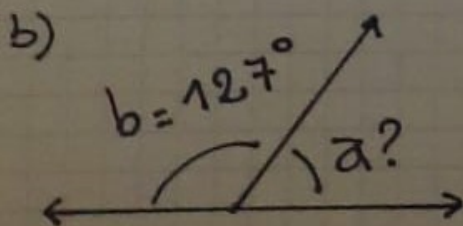 b)
b = 127°
a?